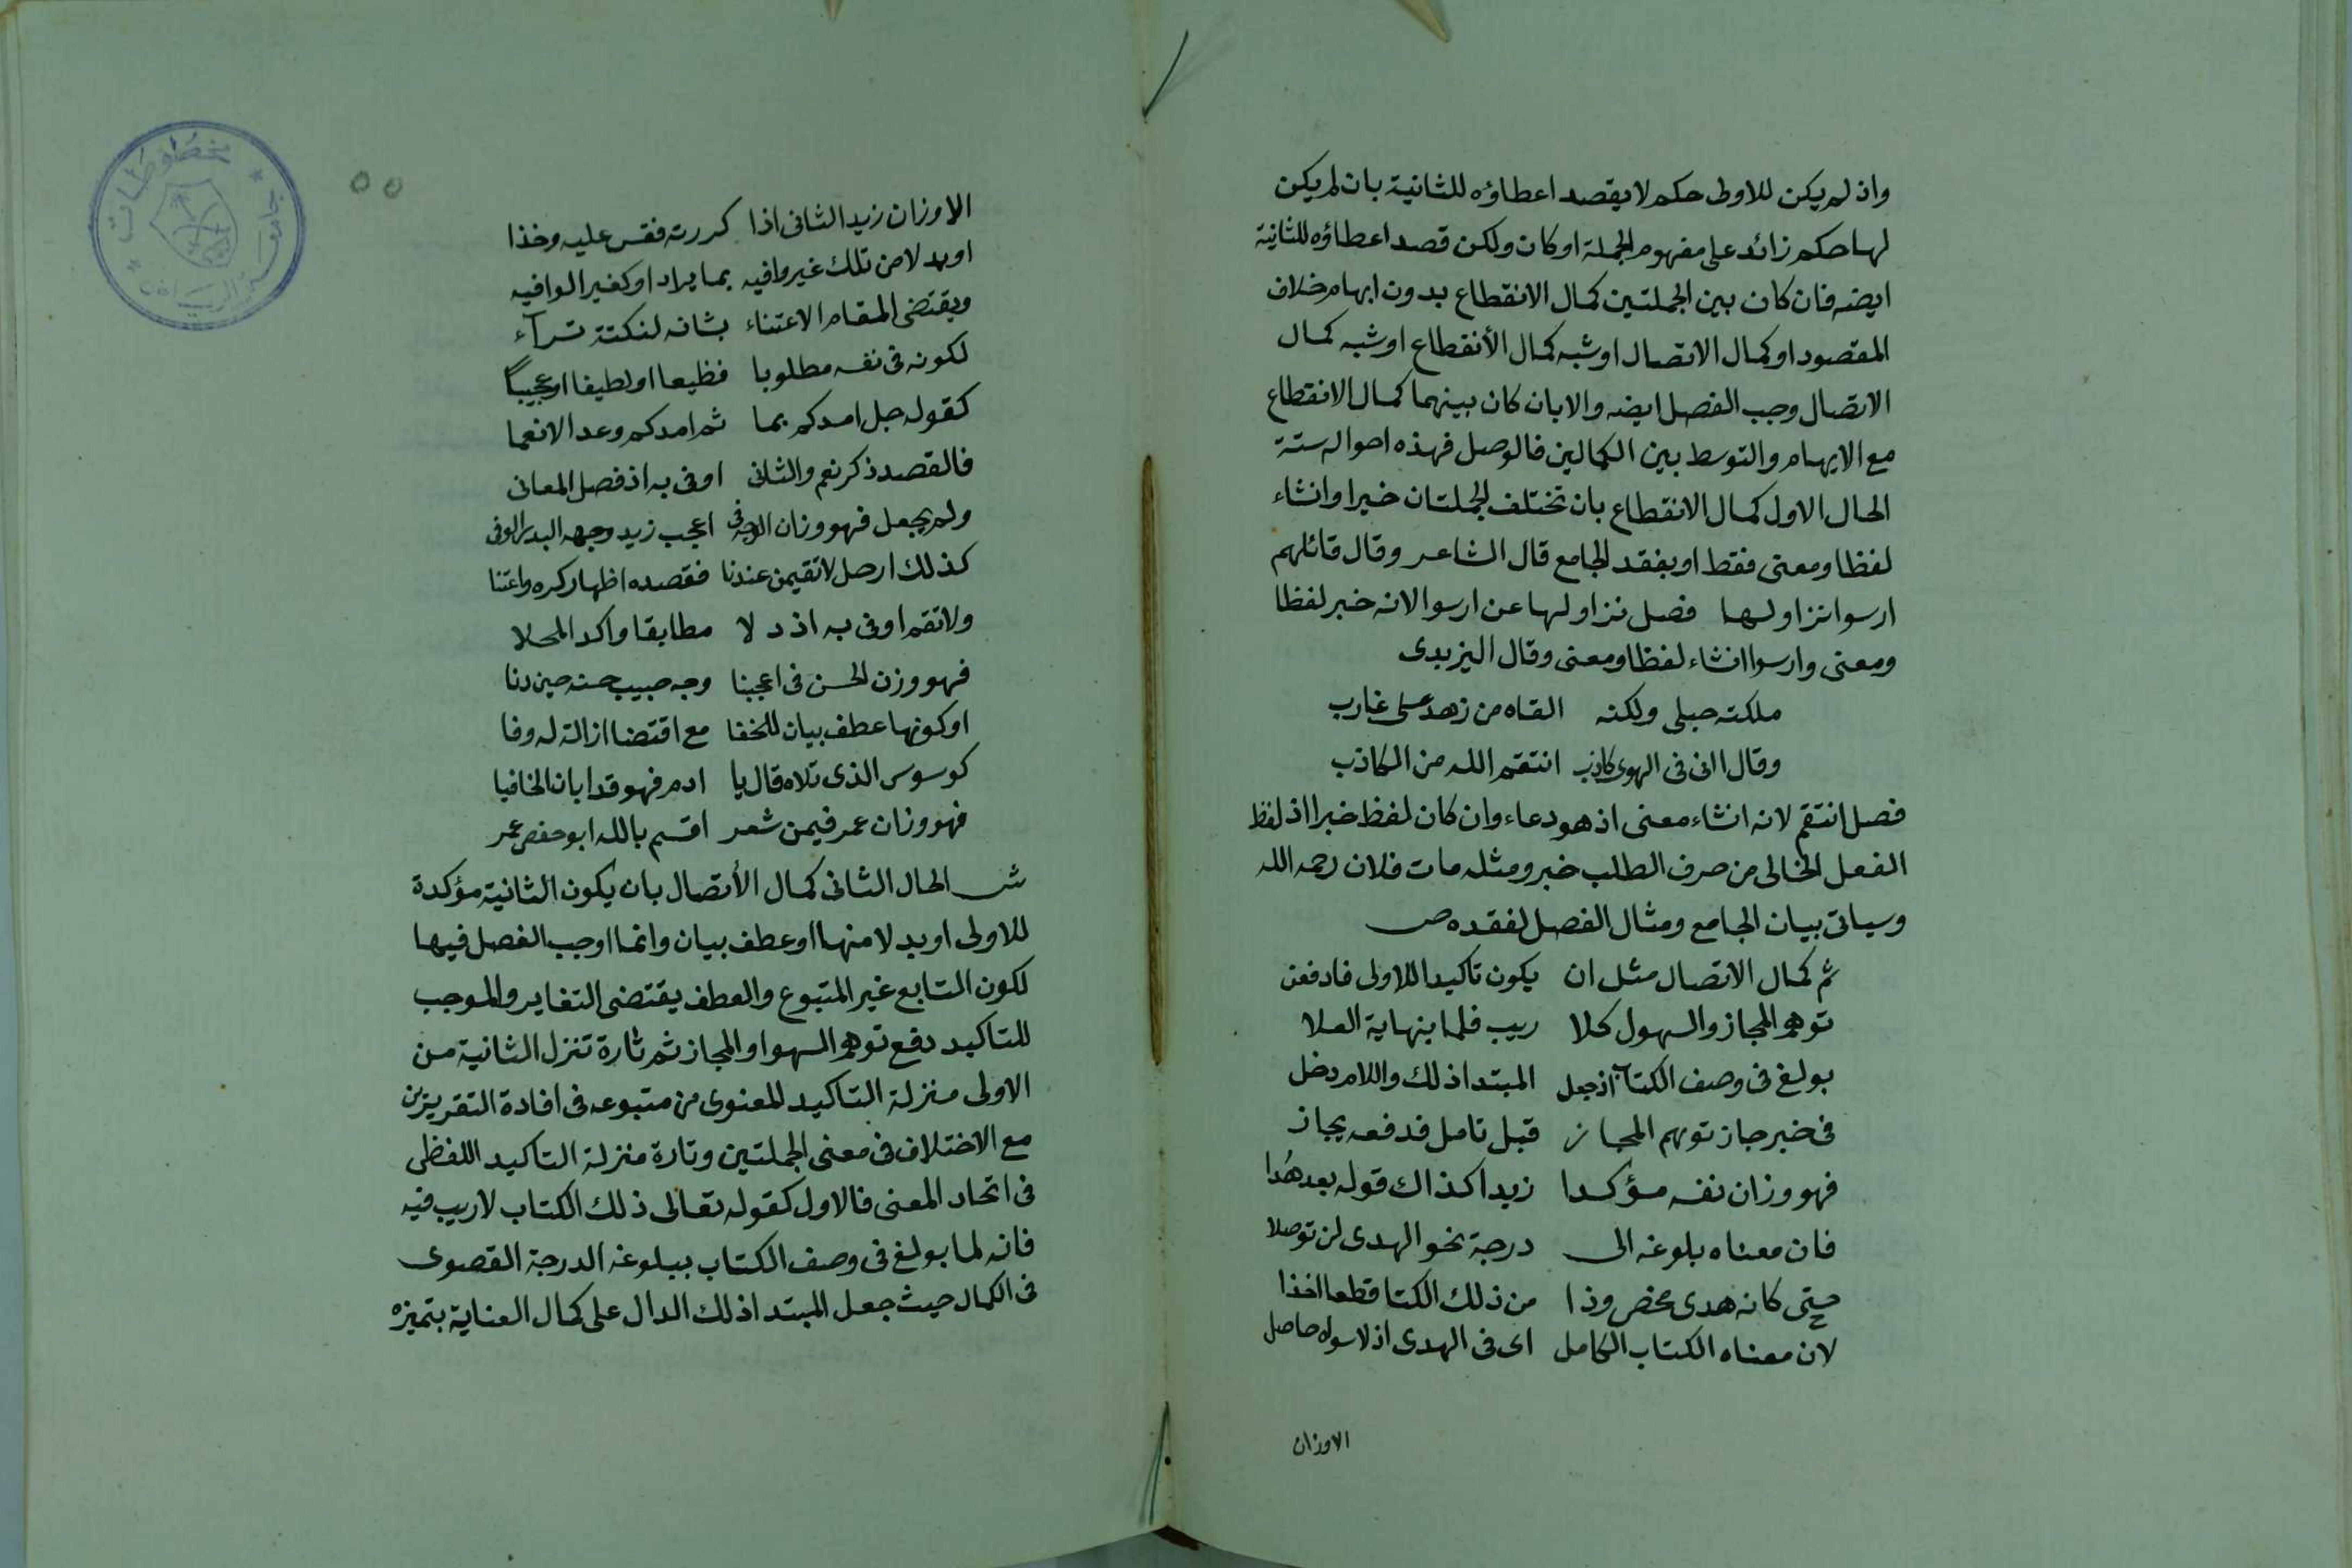 واذ لم يكن للاولى حكم لا يقصد اعطاؤه للثانية بان لم يكن
لها حكم زائد على مفهوم الجملة او كان ولكن قصد اعطاؤه للثانية
ايضه فان كان بين الجملتين كمال الانقطاع بدون ايهام خلاف
المقصود او كمال الاتصال او شبه كمال الأنقطاع او شبه كمال
الاتصال وجب الفصل ايضه والا بان كان بينهما كمال الانقطاع
مع الايهام والتوسط بين الكمالين فالوصل فهذه احواله ستة
الحال الاول كمال الانقطاع بان تختلف الجملتان خبرا وانشاء
لفظا ومعنى فقط او بفقد الجامع قال الشاعر وقال قائلهم
ارسوا نزاولها فصل نزاولها عن ارسوا لانه خبر لفظا
ومعنى وارسوا انشاء لفظا ومعنى وقال اليزيدى
ملكته حبلى ولكنه القاه من زهد على غارب
وقال انى فى الهوى كاذب انتقم الله من الكاذب
فصل انتقم لانه انشاء معنى اذ هو دعاء وان كان لفظ خبرا اذ لفظ
الفعل الخالى من صرف الطلب خبر ومثله مات فلان رحمه الله
وسياتى بيان الجامع ومثال الفصل لفقده ص
ثم كمال الاتصال مثل ان يكون تاكيدا للاولى فادفعن
توهم المجاز والسهو ل كلا ريب فلما بنهاية العلا
بولغ فى وصف الكتاب اذ جعل المبتدا ذلك واللام دخل
فى خبر جاز توهم المجاز قبل تامل فدفعه يجاز
فهو وزان نفسه مؤكدا زيدا كذاك قوله بعد هُدا
فان معناه بلوغه الى درجة نحو الهدى لن توصلا
حتى كانه هدى محض وذا من ذلك الكتا قطعا اخذا
لان معناه الكتاب الكامل اى فى الهدى اذ لا سواه حاصل
الاوزان
٥٥
الاوزان زيد الثانى اذا كررته فقس عليه وخذا
او بدلا من تلك غير وافيه بما يراد او كغير الوافيه
ويقتضى المقام الاعتناء بشانه لنكتة ترآء
لكونه فى نفسه مطلوبا فظيعا او لطيفا او عجيبا
كقوله جل امدكم بما ثم امدكم وعد الانعما
فالقصد ذكر نعم والثانى اوفى به اذ فصل المعانى
ولم يجعل فهو وزان الوجه فى اعجب زيد وجهه البدر الوفى
كذلك ارحل لا تقيمن عندنا فقصده اظهار كره واعتنا
ولا تقم اوفى به اذ دلا مطابقا واكد المحلا
فهو وزن الحسن فى اعجبنا وجه حبيب حسنه حين دنا
او كونها عطف بيان للخفا مع اقتضا ازالة له وفا
كوسوس الذى تلاه قال يا ادم فهو قد ابان الخافيا
فهو وزان عمر فيمن شعر اقسم بالله ابو حفص عمر
ش الحال الثانى كمال الأتصال بان يكون الثانية مؤكدة
للاولى او بدلا منها او عطف بيان وانما اوجب الفصل فيها
لكون التابع غير المتبوع والعطف يقتضى التغاير والموجب
للتاكيد دفع توهم السهو او المجاز ثم تارة تنزل الثانية من
الاولى منزلة التاكيد المعنوى من متبوعه فى افادة التقرير
مع الاختلاف فى معنى الجملتين وتارة منزلة التاكيد اللفظى
فى اتحاد المعنى فالاول كقوله تعالى ذلك الكتاب لا ريب فيه
فانه لما بولغ فى وصف الكتاب ببلوغه الدرجة القصوى
فى الكمال حيث جعل المبتدا ذلك الدال على كمال العناية بتميزه
مخطوطات
جامعة الرياض